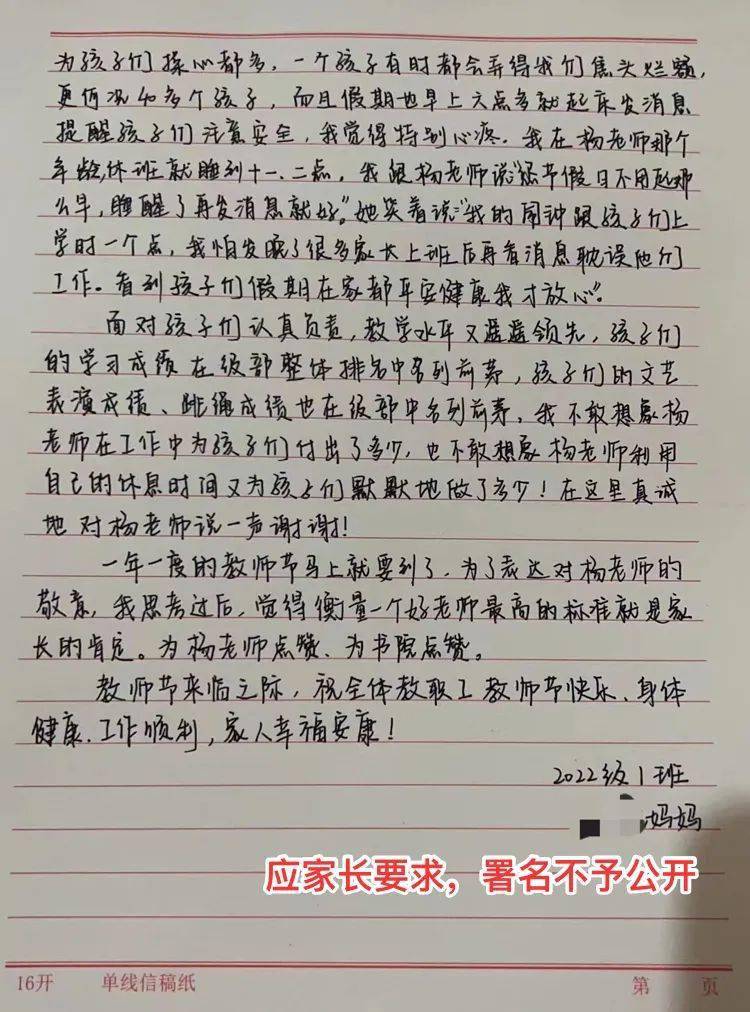 为孩子们操心都多，一个孩子有时都会弄得我们焦头烂额，
更何况40多个孩子，而且假期也早上六点多就起床发消息
提醒孩子们注意安全，我觉得特别心疼。我在杨老师那个
年龄，休班就睡到十一、二点，我跟杨老师说“逢节假日不用起那
么早，睡醒了再发消息就好。”她笑着说：“我的闹钟跟孩子们上
学时一个点，我怕发晚了很多家长上班后再看消息耽误他们
工作。看到孩子们假期在家都平安健康我才放心”。
面对孩子们认真负责，教学水平又遥遥领先，孩子们
的学习成绩在级部整体排名中名列前茅，孩子们的文艺
表演成绩、跳绳成绩也在级部中名列前茅，我不敢想象杨
老师在工作中为孩子们付出了多少，也不敢想象杨老师利用
自己的休息时间又为孩子们默默地做了多少！在这里真诚
地对杨老师说一声谢谢！
一年一度的教师节马上就要到了，为了表达对杨老师的
敬意，我思考过后，觉得衡量一个好老师最高的标准就是家
长的肯定。为杨老师点赞、为书院点赞。
教师节来临之际，祝全体教职工教师节快乐、身体
健康、工作顺利，家人幸福安康！
2022级1班
妈妈
应家长要求，署名不予公开
16开 单线信稿纸 第 页